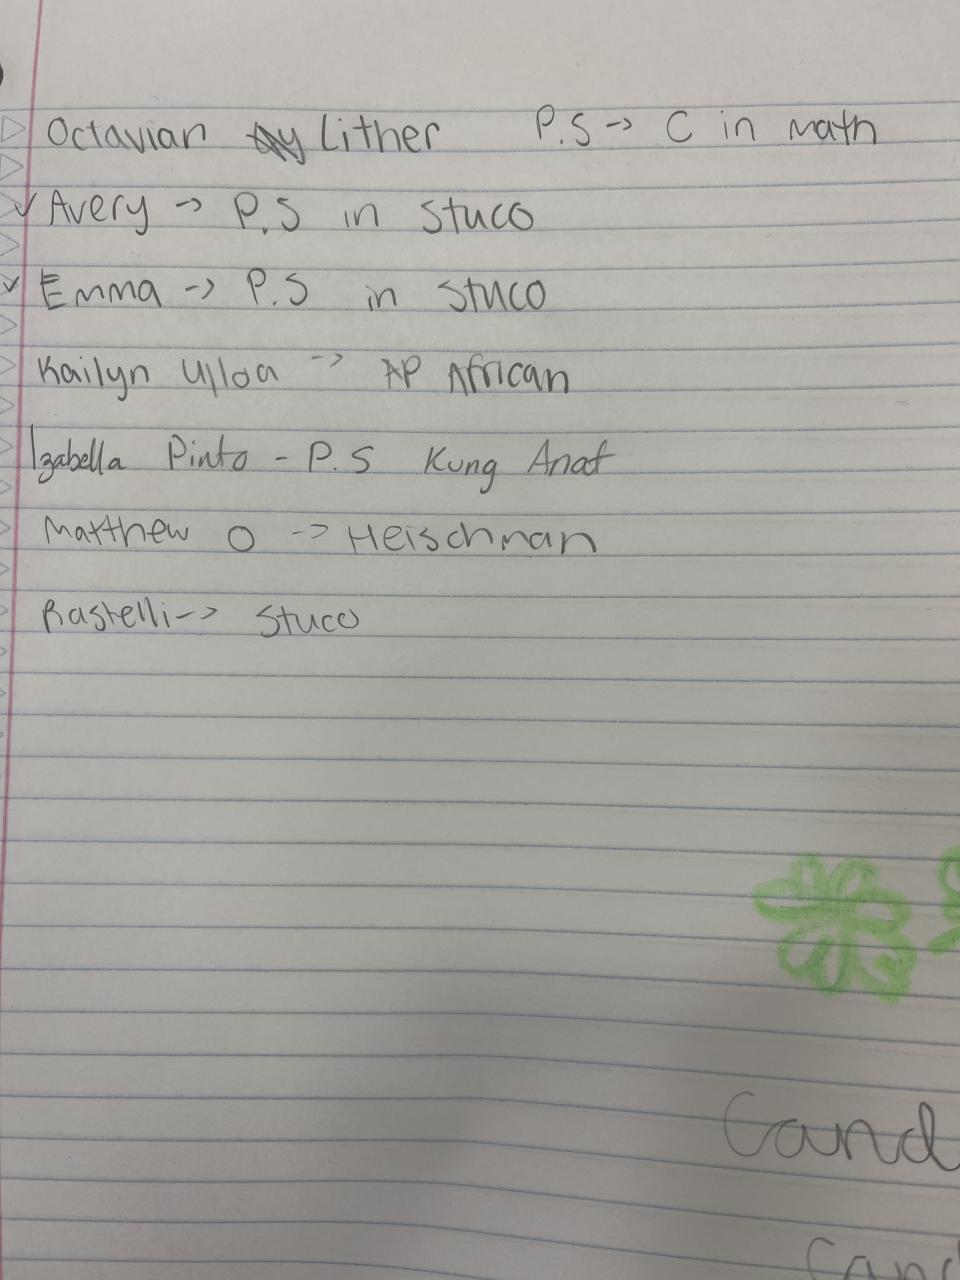 Octavian Lither P.S → C in math
✓ Avery → P.S in Stuco
✓ Emma → P.S in Stuco
Kailyn Ulloa → AP African
Izabella Pinto - P.S Kung Anat
Matthew O → Heischman
Rastelli → Stuco
Cand
Cand